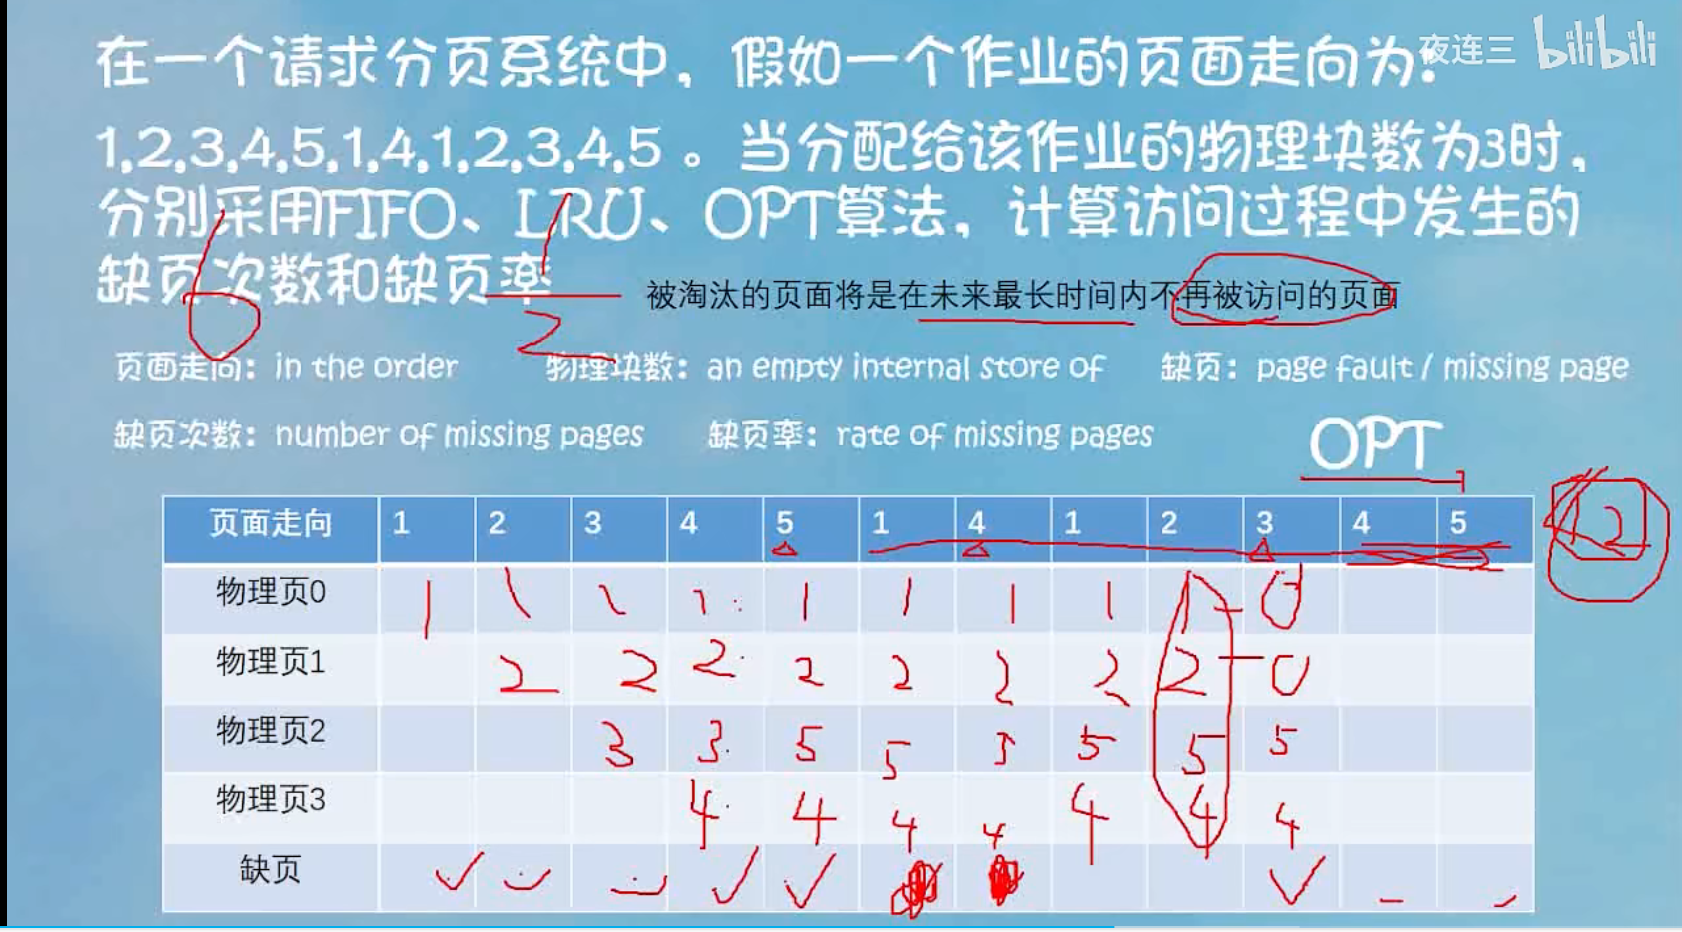 在一个请求分页系统中，假如一个作业的页面走向为：
夜连三 bilibili
1,2,3,4,5,1,4,1,2,3,4,5 。当分配给该作业的物理块数为3时，
分别采用FIFO、LRU、OPT算法，计算访问过程中发生的
缺页次数和缺页率
被淘汰的页面将是在未来最长时间内不再被访问的页面
6 1
2
页面走向：in the order 物理块数：an empty internal store of 缺页：page fault / missing page
缺页次数：number of missing pages 缺页率：rate of missing pages
OPT
页面走向 1 2 3 4 5 1 4 1 2 3 4 5 12
物理页0 1 1 1 1 1 1 1 1 1 0
物理页1 2 2 2 2 2 2 2 2 0
物理页2 3 3 5 5 5 5 5 5
物理页3 4 4 4 4 4 4 4
缺页